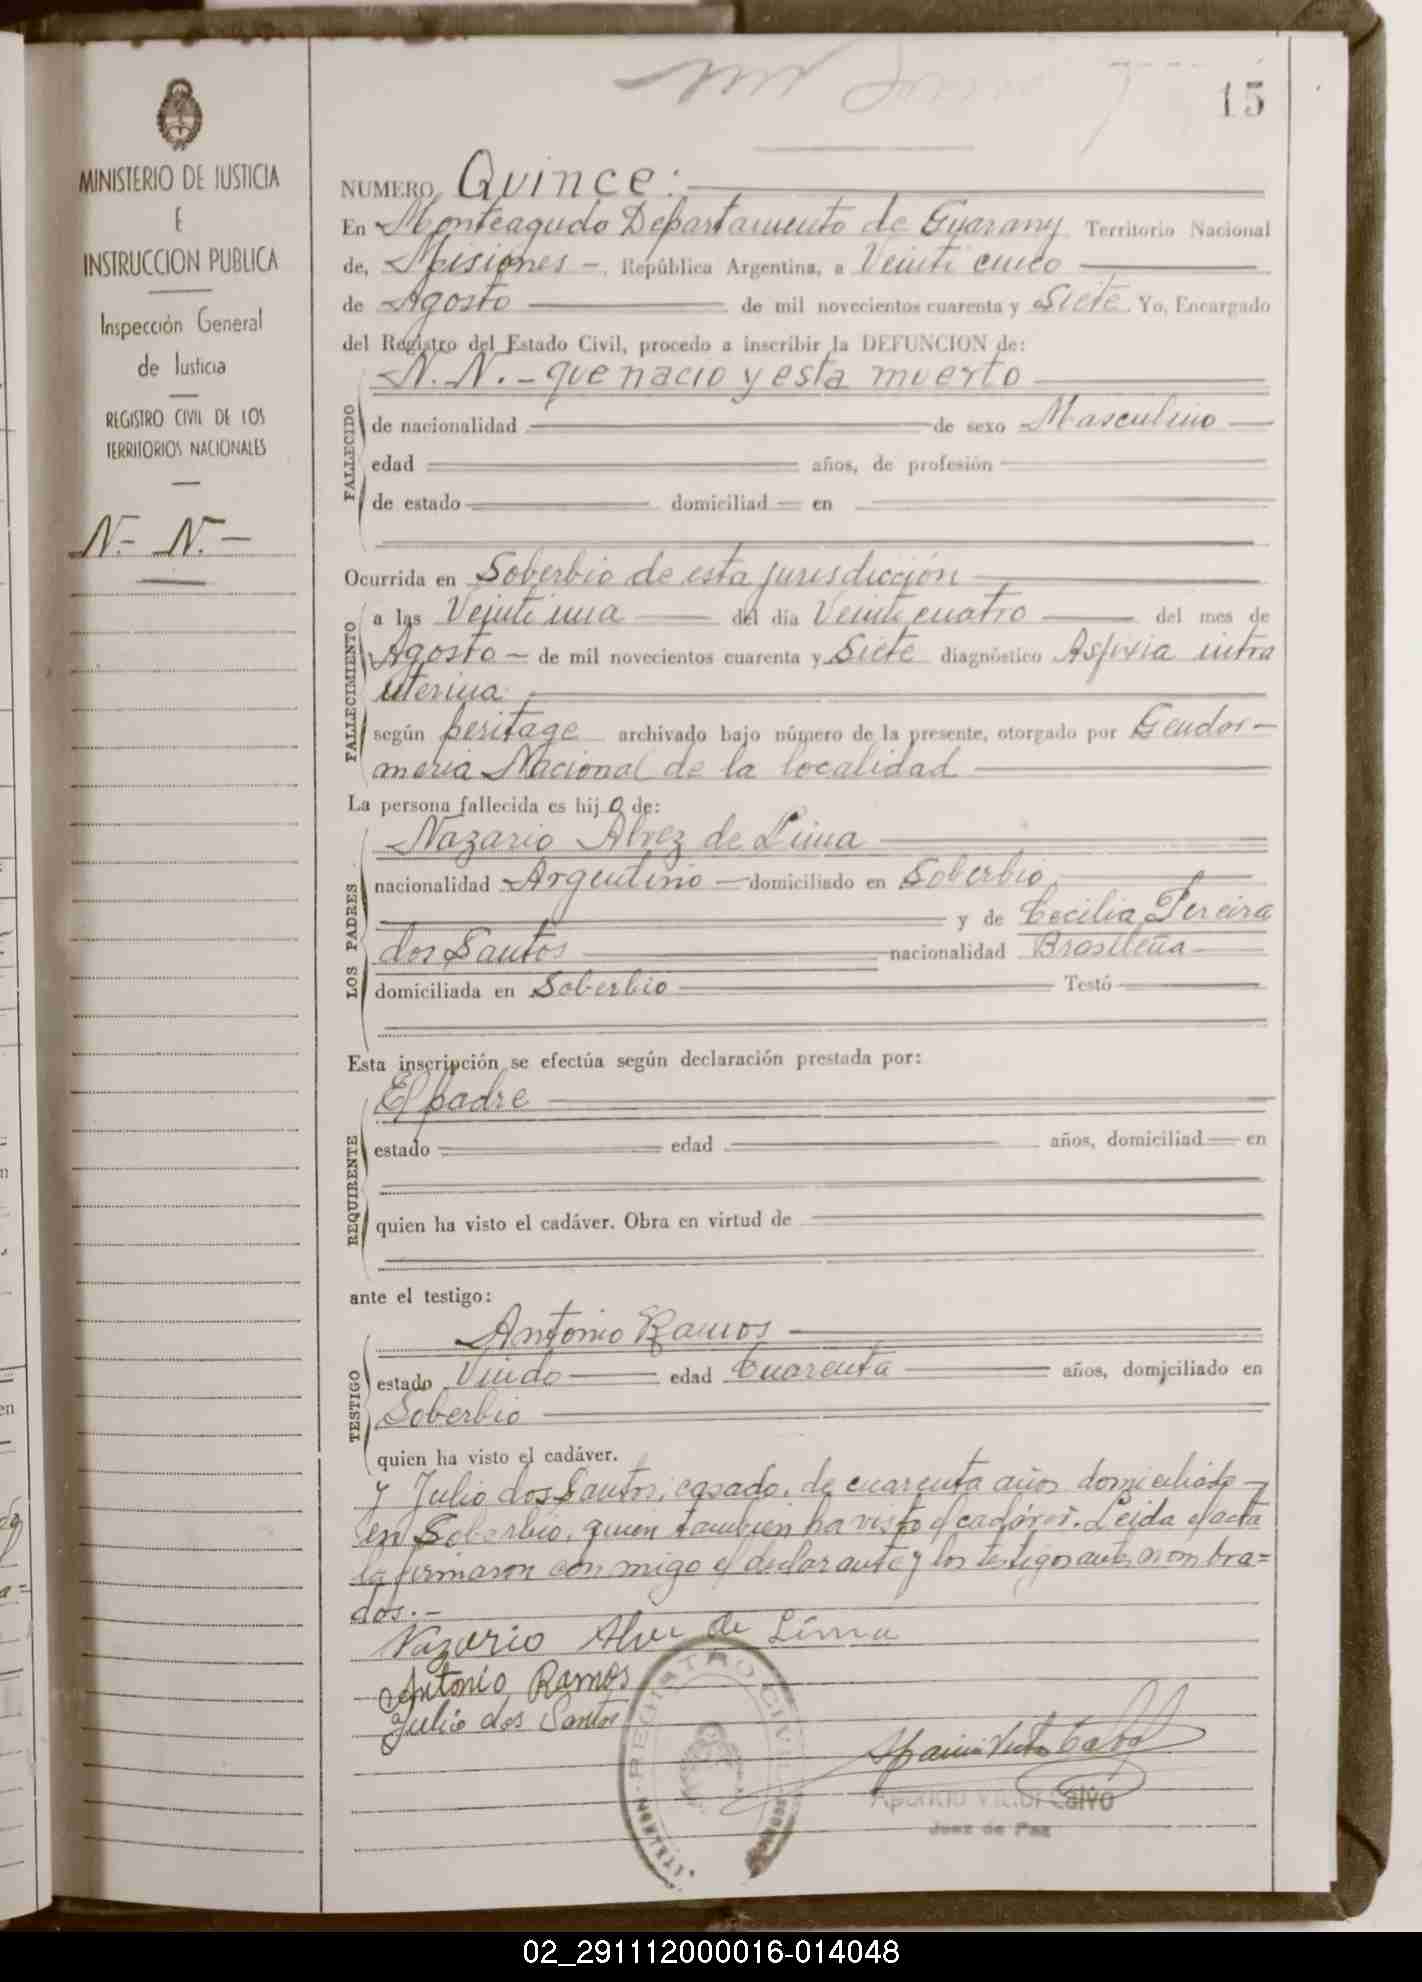 15
MINISTERIO DE JUSTICIA
E
INSTRUCCION PUBLICA
Inspección General
de Justicia
REGISTRO CIVIL DE LOS
TERRITORIOS NACIONALES
N.- N.-
NUMERO Quince:
En Monteagudo Departamento de Guarany Territorio Nacional
de, Misiones -, República Argentina, a Veinti cinco
de Agosto de mil novecientos cuarenta y Siete Yo, Encargado
del Registro del Estado Civil, procedo a inscribir la DEFUNCION de:
N. N. - que nacio y esta muerto
FALLECIDO
de nacionalidad de sexo Masculino
edad años, de profesión
de estado domiciliad en
Ocurrida en Soberbio de esta jurisdicción
FALLECIMIENTO
a las Veinti una del día Veinti cuatro del mes de
Agosto - de mil novecientos cuarenta y Siete diagnóstico Asfixia intra
uterina
según peritage archivado bajo número de la presente, otorgado por Gendar-
meria Nacional de la localidad
La persona fallecida es hijo de:
LOS PADRES
Nazario Alvez de Lima
nacionalidad Argentino - domiciliado en Soberbio
y de Cecilia Pereira
dos Santos nacionalidad Brasileña
domiciliada en Soberbio Testó
Esta inscripción se efectúa según declaración prestada por:
REQUIRENTE
El padre
estado edad años, domiciliad en
quien ha visto el cadáver. Obra en virtud de
ante el testigo:
TESTIGO
Antonio Ramos
estado Viudo edad Cuarenta años, domiciliado en
Soberbio
quien ha visto el cadáver.
y Julio dos Santos, casado, de cuarenta años domiciliado
en Soberbio, quien tambien ha visto el cadáver. Leida el acta
la firmaron con migo el declarante y los testigos antes nombra=
dos.-
Nazario Alve de Lima
Antonio Ramos
Julio dos Santos
REGISTRO CIVIL
Calvo
Juez de Paz
02_291112000016-014048